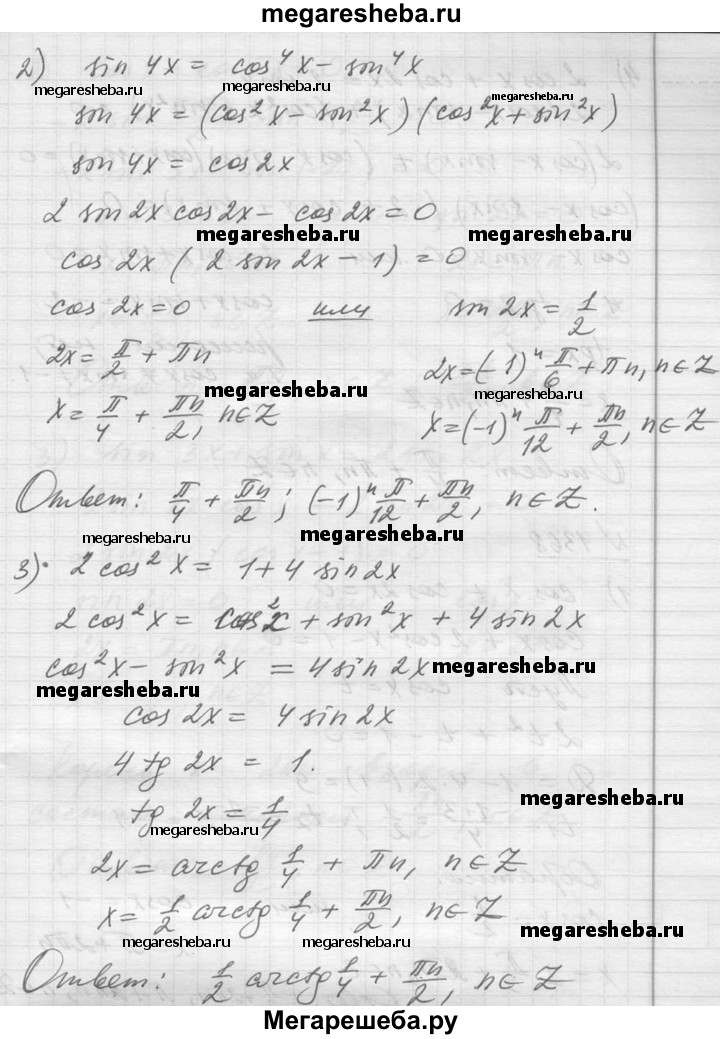 megaresheba.ru
2) sin 4x = cos⁴x − sin⁴x
megaresheba.ru megaresheba.ru megaresheba.ru
sin 4x = (cos²x − sin²x) (cos²x + sin²x)
sin 4x = cos 2x
2 sin 2x cos 2x − cos 2x = 0
megaresheba.ru megaresheba.ru
cos 2x ( 2 sin 2x − 1) = 0
cos 2x = 0 или sin 2x = 1/2
2x = π/2 + πn 2x = (−1)ⁿ π/6 + πn, n ∈ Z
megaresheba.ru
x = π/4 + πn/2, n ∈ Z x = (−1)ⁿ π/12 + πn/2, n ∈ Z
Ответ: π/4 + πn/2 ; (−1)ⁿ π/12 + πn/2, n ∈ Z.
megaresheba.ru megaresheba.ru
3) 2 cos²x = 1 + 4 sin 2x
2 cos²x = cos²x + sin²x + 4 sin 2x
cos²x − sin²x = 4 sin 2x megaresheba.ru
megaresheba.ru
cos 2x = 4 sin 2x
4 tg 2x = 1.
megaresheba.ru
tg 2x = 1/4
megaresheba.ru
2x = arctg 1/4 + πn, n ∈ Z
x = 1/2 arctg 1/4 + πn/2, n ∈ Z
megaresheba.ru megaresheba.ru
Ответ: 1/2 arctg 1/4 + πn/2, n ∈ Z
Мегарешеба.ру